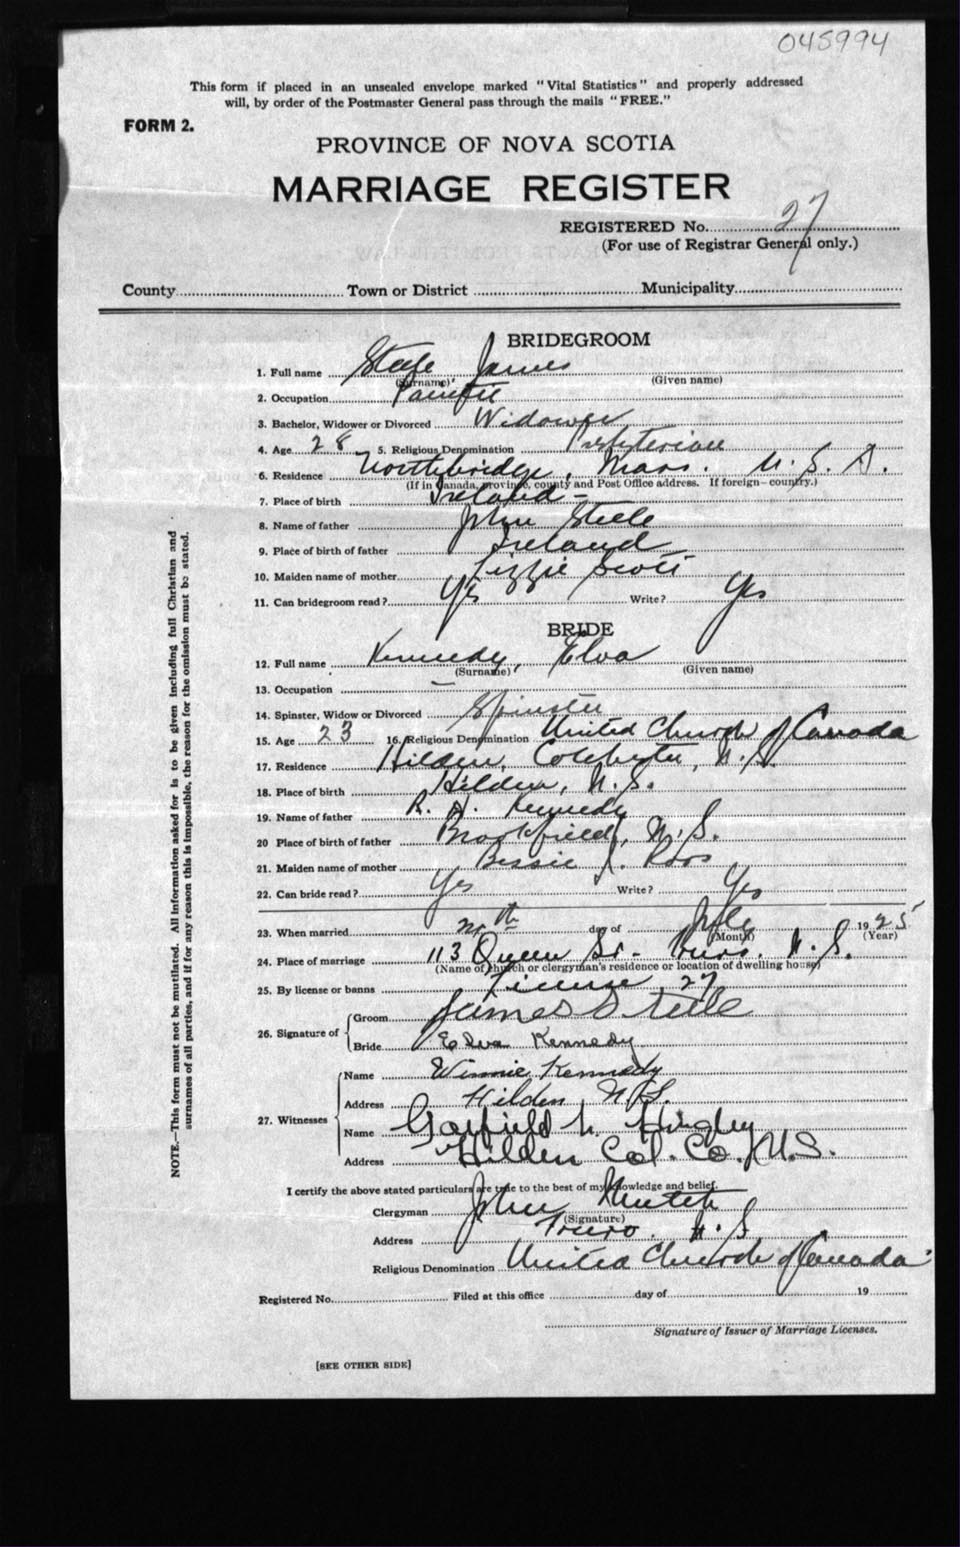 045994
This form if placed in an unsealed envelope marked "Vital Statistics" and properly addressed
will, by order of the Postmaster General pass through the mails "FREE."
FORM 2.
PROVINCE OF NOVA SCOTIA
MARRIAGE REGISTER
REGISTERED No. 27
(For use of Registrar General only.)
County Town or District Municipality
BRIDEGROOM
1. Full name Steele James
(Surname) (Given name)
2. Occupation Painter
3. Bachelor, Widower or Divorced Widower
4. Age 28 5. Religious Denomination Presbyterian
6. Residence Northbridge, Mass. U. S. A.
(If in Canada, province, county and Post Office address. If foreign—country.)
7. Place of birth Ireland -
8. Name of father John Steele
9. Place of birth of father Ireland
10. Maiden name of mother Lizzie Scott
11. Can bridegroom read? Yes Write? Yes
BRIDE
12. Full name Kennedy, Elva
(Surname) (Given name)
13. Occupation —
14. Spinster, Widow or Divorced Spinster
15. Age 23 16. Religious Denomination United Church of Canada
17. Residence Hilden, Colchester, N. S.
18. Place of birth Hilden, N. S.
19. Name of father R. H. Kennedy
20 Place of birth of father Brookfield, N. S.
21. Maiden name of mother Bessie J. Ross
22. Can bride read? Yes Write? Yes
23. When married day of 1925
(Month) (Year)
24. Place of marriage 113 Queen St. N. S.
(Name of church or clergyman's residence or location of dwelling house)
25. By license or banns License 27
26. Signature of Groom James Steele
Bride Elva Kennedy
27. Witnesses Name Winnie Kennedy
Address Hilden N.S.
Name Garfield Hingley
Address Hilden Col. Co. N.S.
I certify the above stated particulars are true to the best of my knowledge and belief.
Clergyman John
(Signature)
Address Truro N. S
Religious Denomination United Church of Canada
Registered No. Filed at this office day of 19
Signature of Issuer of Marriage Licenses.
[SEE OTHER SIDE]
NOTE.—This form must not be mutilated. All information asked for is to be given including full Christian and
surnames of all parties, and if for any reason this is impossible, the reason for the omission must be stated.